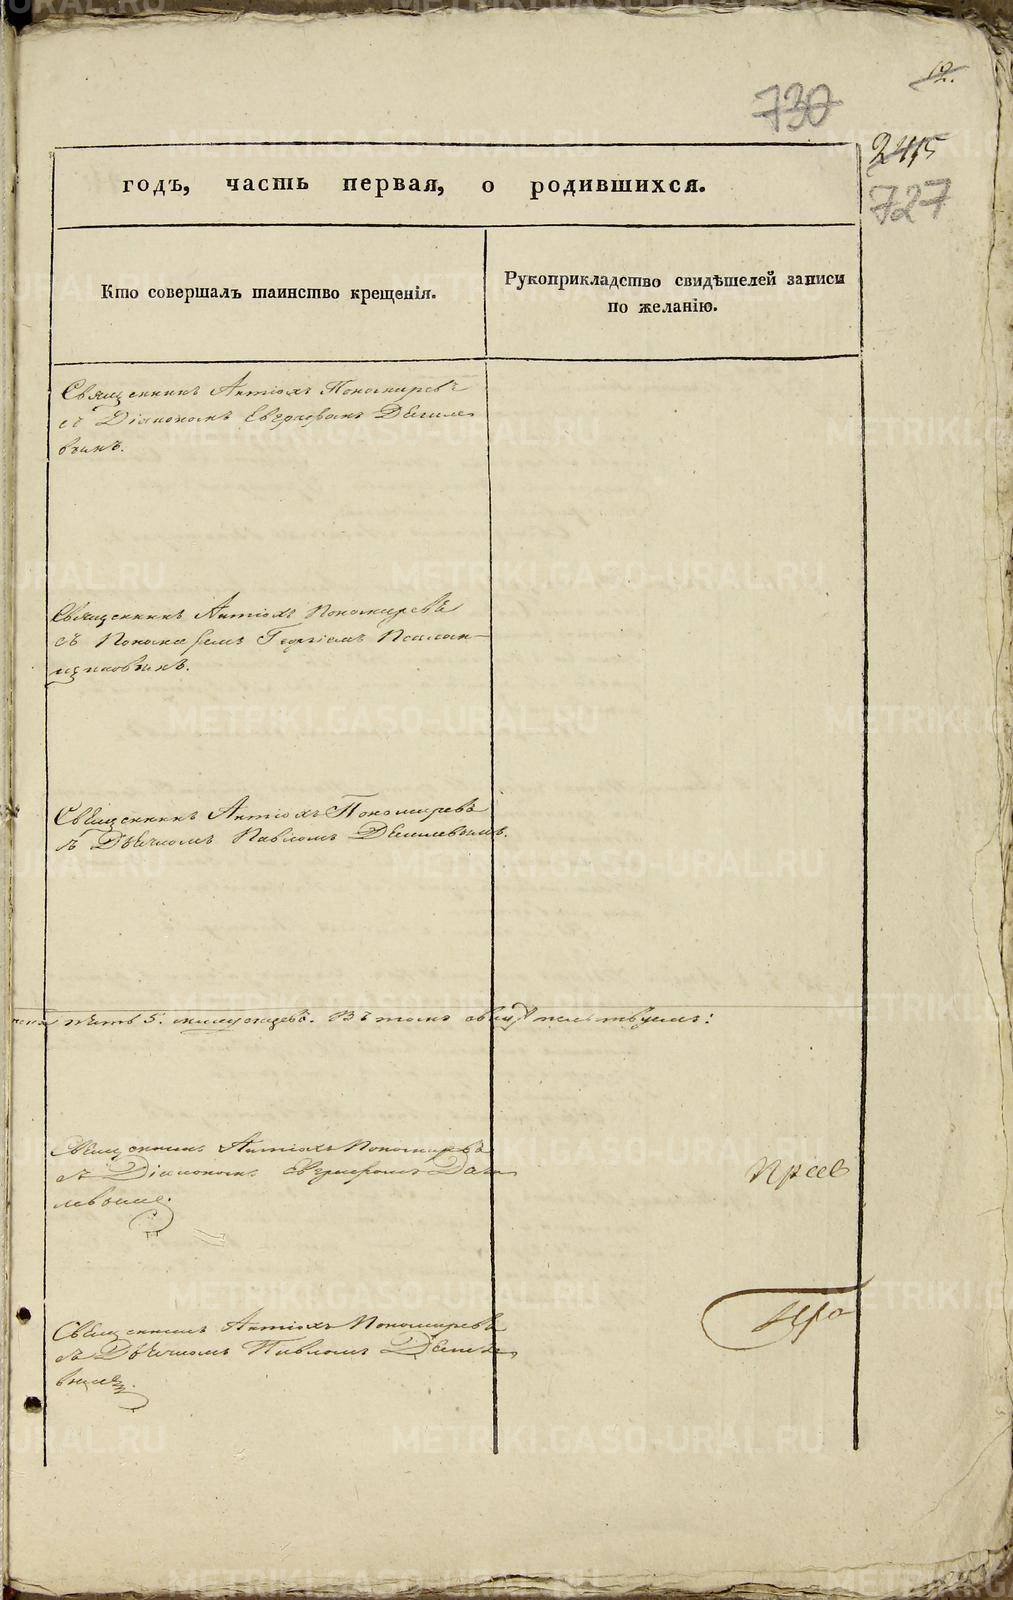 12.
730
245
727
годъ, часть первая, о родившихся.
Кто совершалъ таинство крещенія.
Рукоприкладство свидѣтелей записи
по желанію.
Священникъ Антіохъ Пономаревъ
съ Діакономъ Евграфомъ
Священникъ Антіохъ Пономаревъ
съ Пономаремъ Георгіемъ Псалом-
щиковымъ.
Священникъ Антіохъ Пономаревъ
съ Дьячкомъ Павломъ
пять 5. Въ томъ свидѣтельствуемъ:
Священникъ Антіохъ Пономаревъ
съ Діакономъ Евграфомъ
Священникъ Антіохъ Пономаревъ
съ Дьячкомъ Павломъ
METRIKI.GASO-URAL.RU